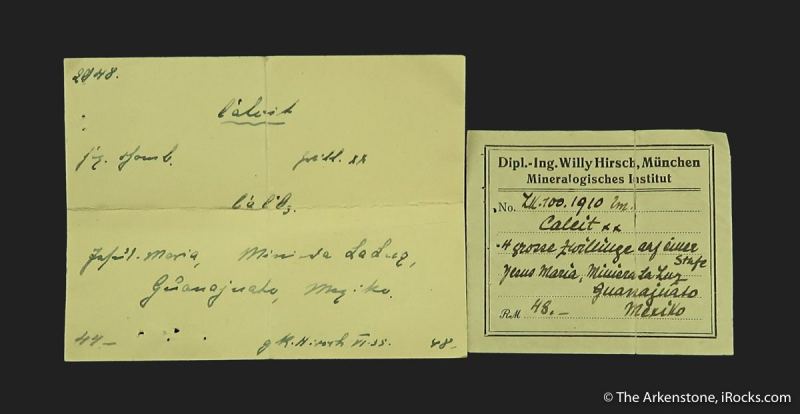 2048.
Calcit
CaCO3.
Jesus Maria, Mina de La Luz,
Guanajuato, Mexiko.
44.—
48.—
Dipl.-Ing. Willy Hirsch, München
Mineralogisches Institut
No. 100.1910
Calcit xx
4 grosse Zwillinge auf einer
Stufe
Jesus Maria, Miniera La Luz
Guanajuato
Mexiko
RM 48.—
© The Arkenstone, iRocks.com